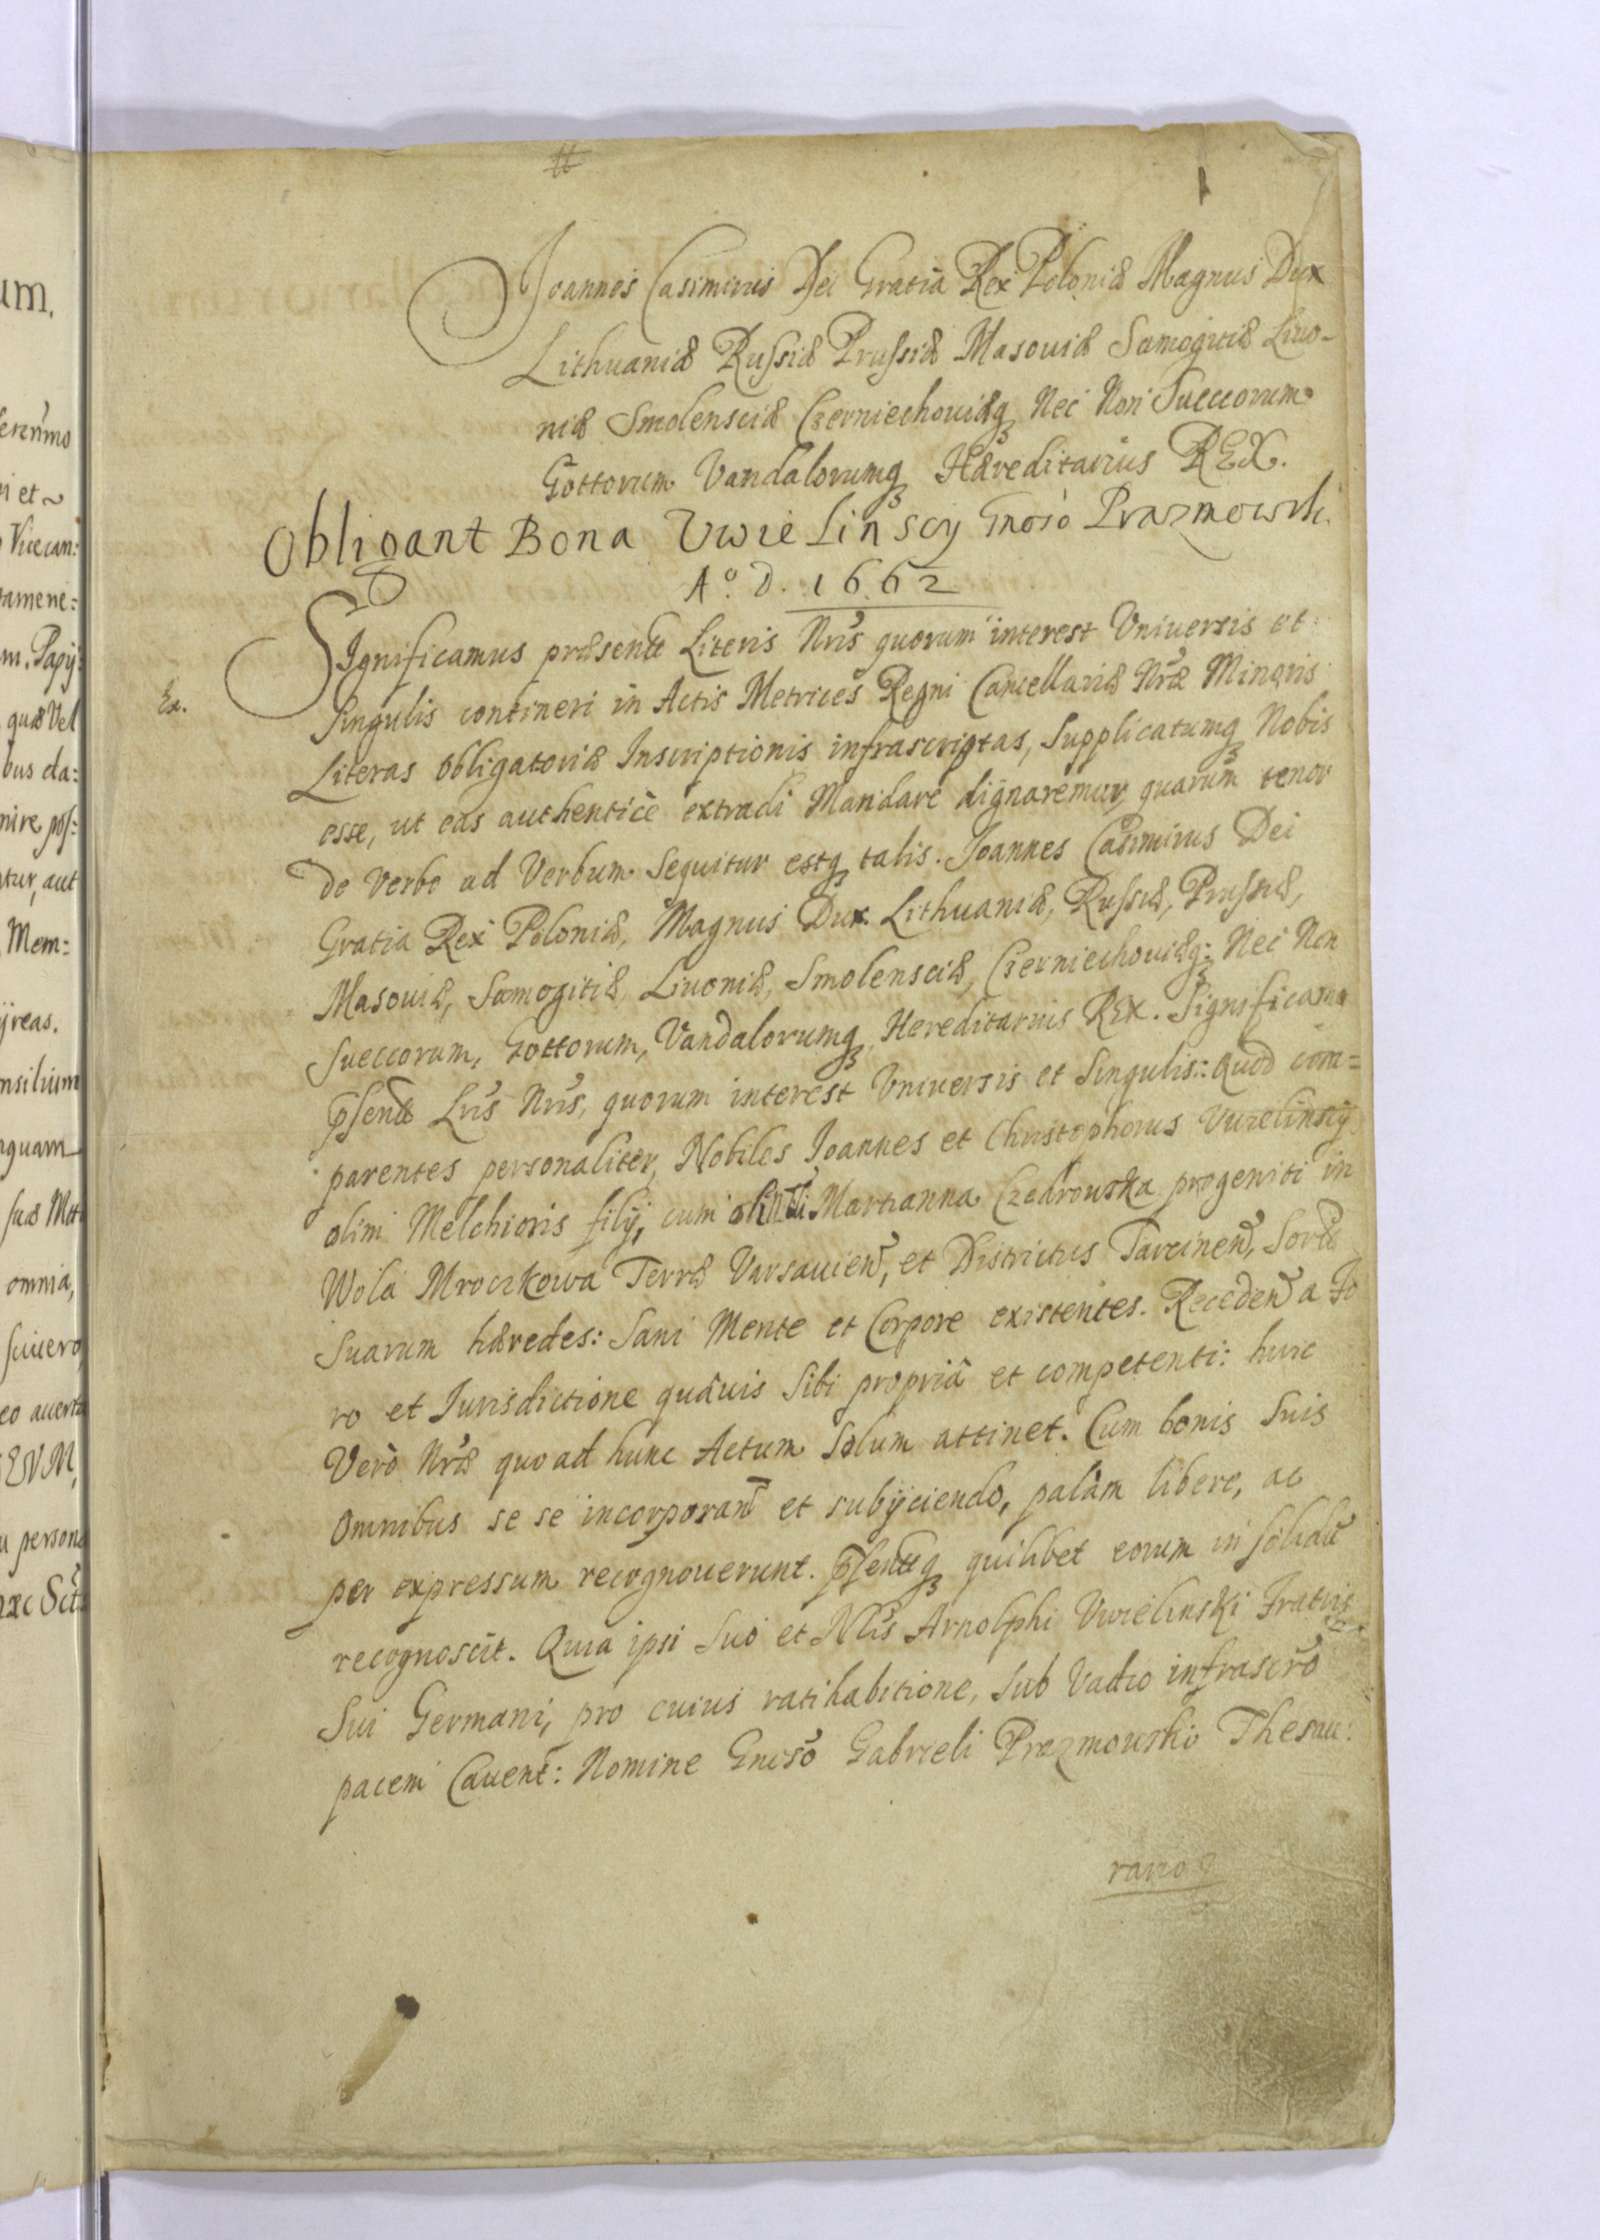 Joannes Casimirus Dei Gratiâ Rex Poloniæ Magnus Dux
Lithuaniæ Russiæ Prussiæ Masouiæ Samogitiæ Liuo-
niæ Smolensciæ Czerniechouiæq; Nec Non Sueccorum
Gottorum Vandalorumq; Hæreditarius REX.
Obligant Bona Uwielinscy Gnoso Prazmowski
Aº. D. 1662
Ex.
Significamus præsentt Literis Nris quorum interest Vniuersis et
Singulis contineri in Actis Metrices Regni Cancellariæ Nræ Minoris
Literas Obligatoriæ Inscriptionis infrascriptas, Supplicatumq; Nobis
esse, ut eas authenticè extradi Mandare dignaremur, quarum tenor
de Verbo ad Verbum Sequitur estq; talis. Joannes Casimirus Dei
Gratia Rex Poloniæ, Magnus Dux Lithuaniæ, Russiæ, Prussiæ,
Masouiæ, Samogitiæ, Liuoniæ, Smolensciæ, Czerniechouiæq; Nec Non
Sueccorum, Gottorum, Vandalorumq; Hereditarius REX. Significam9
psentt Lris Nris, quorum interest Vniuersis et Singulis: Quòd com=
parentes personaliter, Nobiles Joannes et Christophorus Vwielinscy
olim Melchioris filij, cum olim Marianna Czedrowska progeniti in
Wola Mroczkowa Terræ Varsauien, et Districtus Tarcinen, Sortt
Suarum hæredes: Sani Mente et Corpore existentes. Receden a Fo
ro et Iurisdictione quâuis Sibi propriâ et competenti: huic
Verò Nræ quo ad hunc Actum Solum attinet. Cum bonis Suis
Omnibus se se incorporan et subijciendo, palàm libere, ac
per expressum recognouerunt. psenttq; quilibet eorum in solidu
recognoscit. Quia ipsi Suo et Nlis Arnolphi Vwielinski Fratris
Sui Germani, pro cuius ratihabitione, Sub Vadio infrascro
pacem Cauent: Nomine Gnoso Gabrieli Prazmowski Thesau:
rario